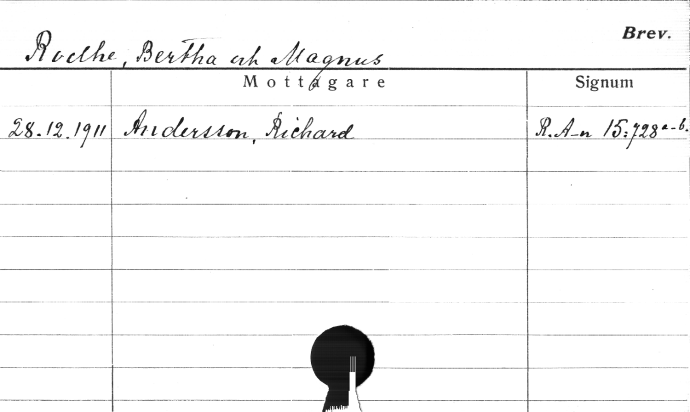 Brev.
Rodhe, Bertha och Magnus
Mottagare Signum
28.12.1911 Andersson, Richard R.A-n 15:728 a-b.